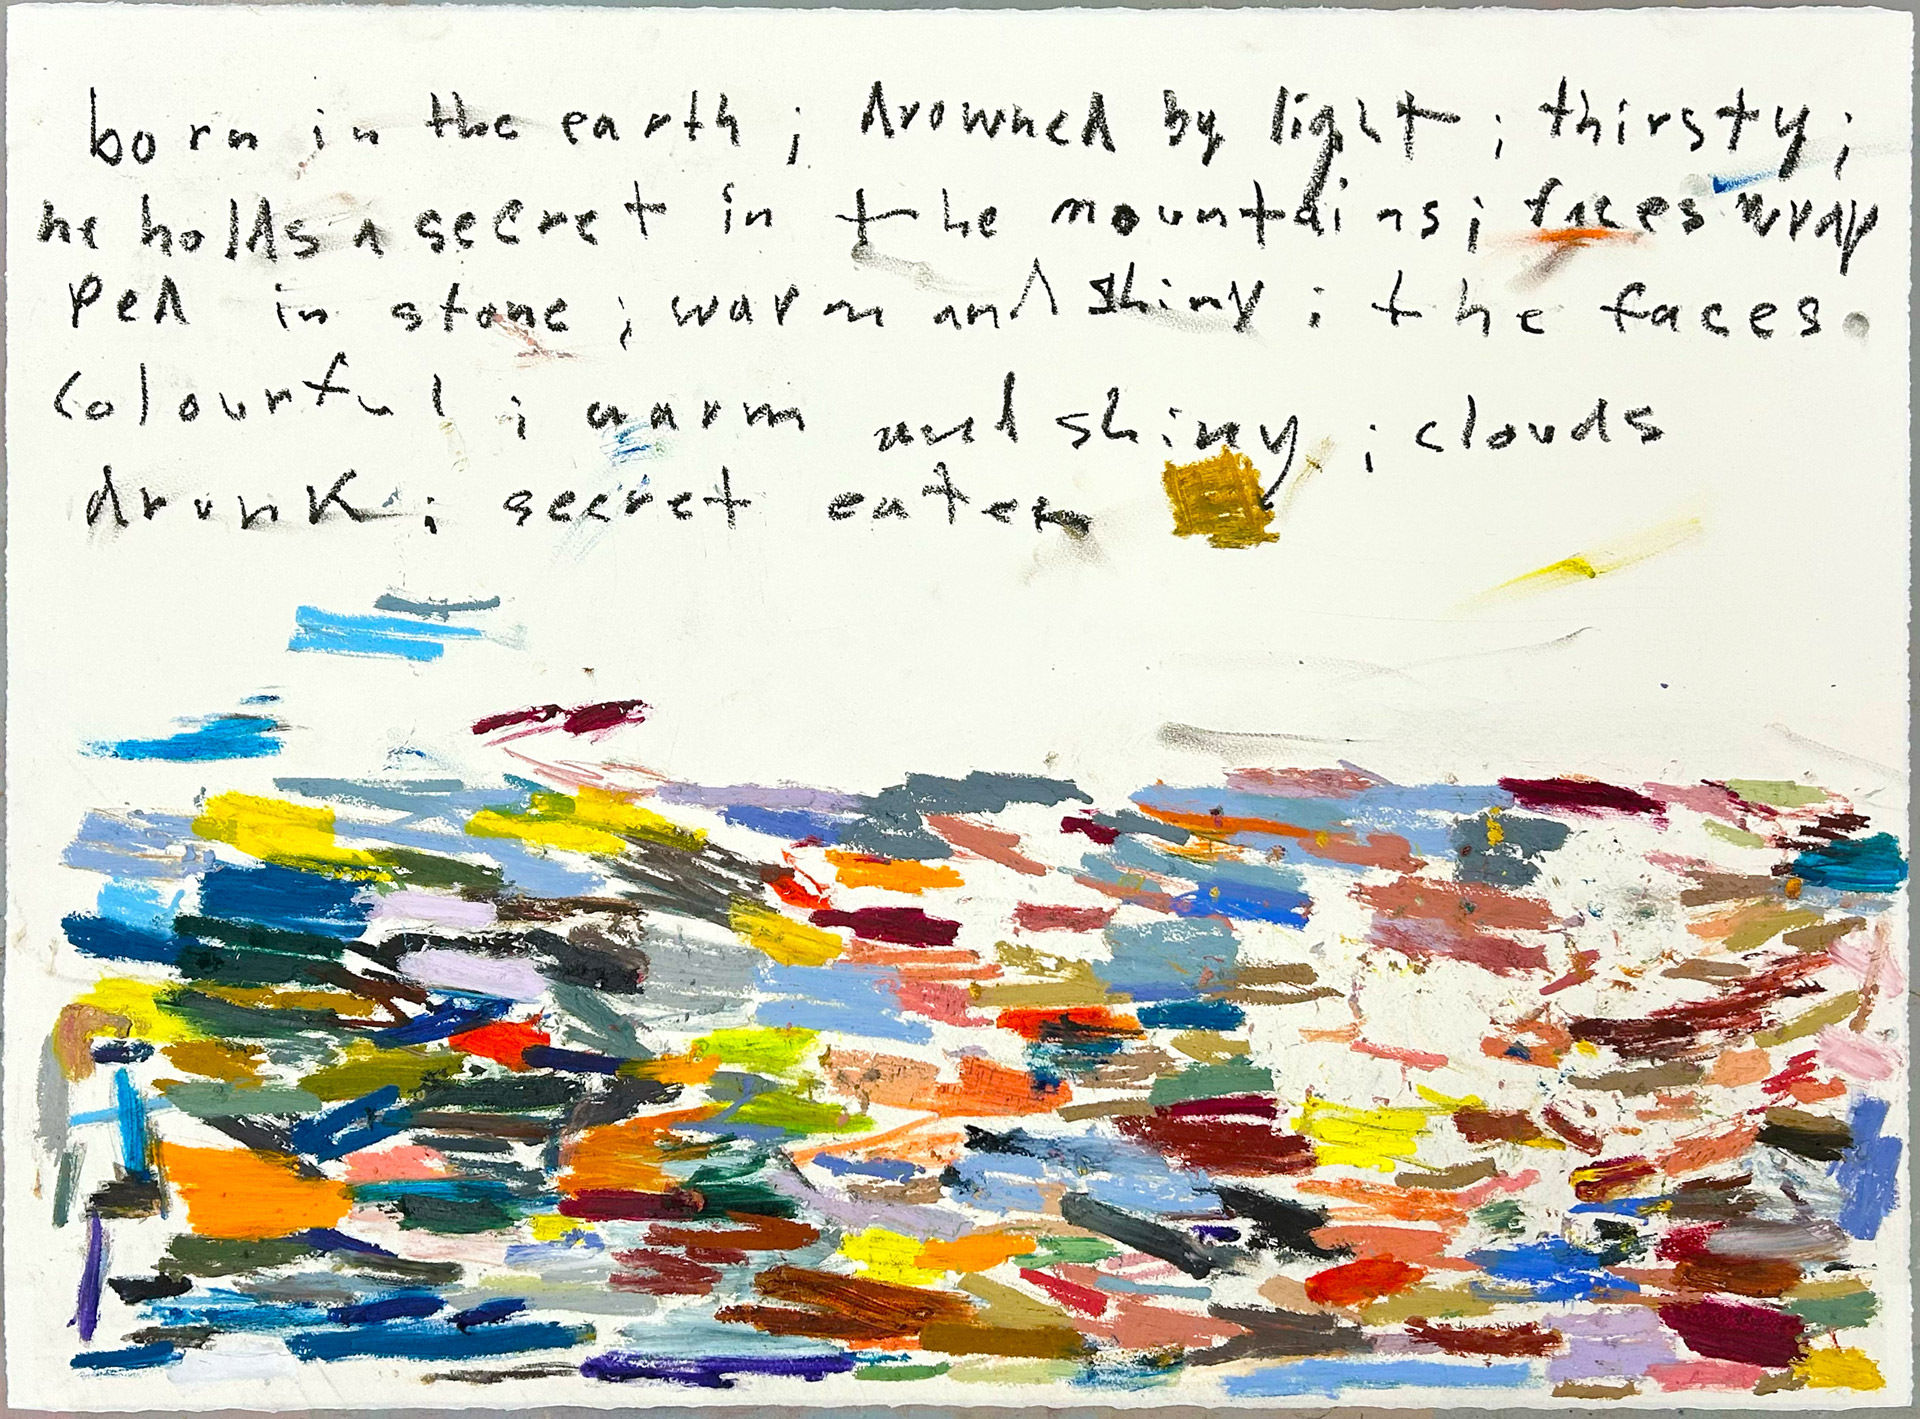 born in the earth ; drowned by light ; thirsty ;
he holds a secret in the mountains ; faces wrap
ped in stone ; warm and shiny ; the faces.
colourful ; warm and shiny ; clouds
drunk ; secret eater